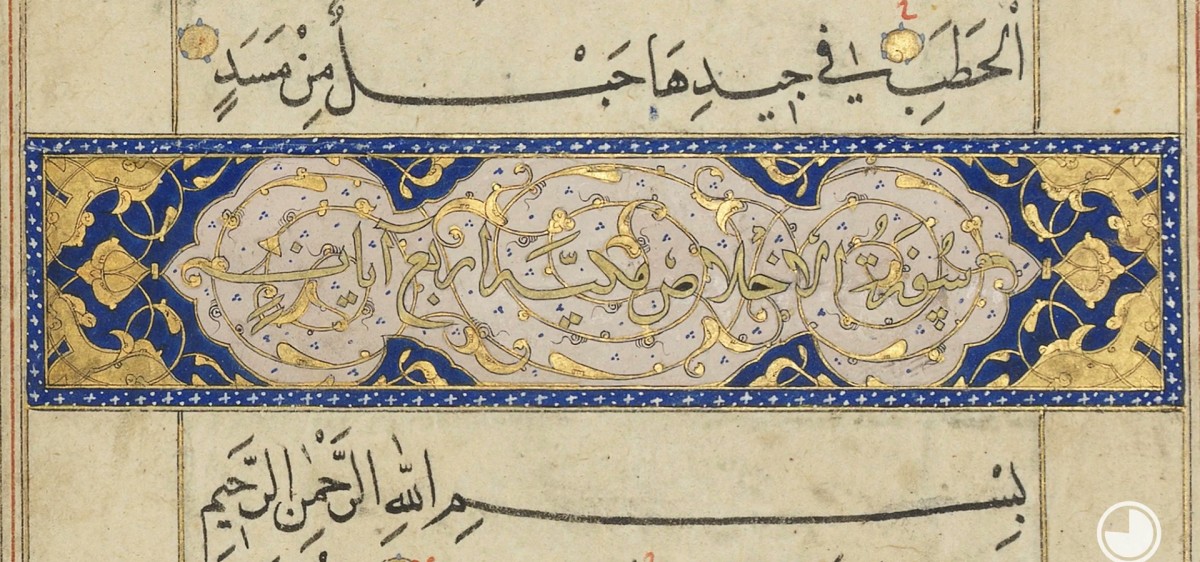 الْحَطَبِ فِي جِيدِهَا حَبْلٌ مِنْ مَسَدٍ
سورة الاخلاص مكية اربع آيات
بِسْمِ اللهِ الرَّحْمٰنِ الرَّحِيمِ